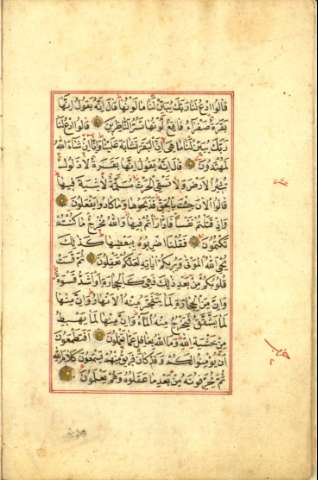 قالوا ادع لنا ربك يبين لنا ما لونها قال إنه يقول إنها
بقرة صفراء فاقع لونها تسر الناظرين قالوا ادع لنا
ربك يبين لنا ما هي إن البقر تشابه علينا وإنا إن شاء الله
لمهتدون قال إنه يقول إنها بقرة لا ذلول
تثير الأرض ولا تسقي الحرث مسلمة لا شية فيها
قالوا الآن جئت بالحق فذبحوها وما كادوا يفعلون
وإذ قتلتم نفسا فادارأتم فيها والله مخرج ما كنتم
تكتمون فقلنا اضربوه ببعضها كذلك
يحيي الله الموتى ويريكم آياته لعلكم تعقلون ثم قست
قلوبكم من بعد ذلك فهي كالحجارة أو أشد قسوة
وإن من الحجارة لما يتفجر منه الأنهار وإن منها
لما يشقق فيخرج منه الماء وإن منها لما يهبط
من خشية الله وما الله بغافل عما تعملون أفتطمعون
أن يؤمنوا لكم وقد كان فريق منهم يسمعون كلام الله
ثم يحرفونه من بعد ما عقلوه وهم يعلمون